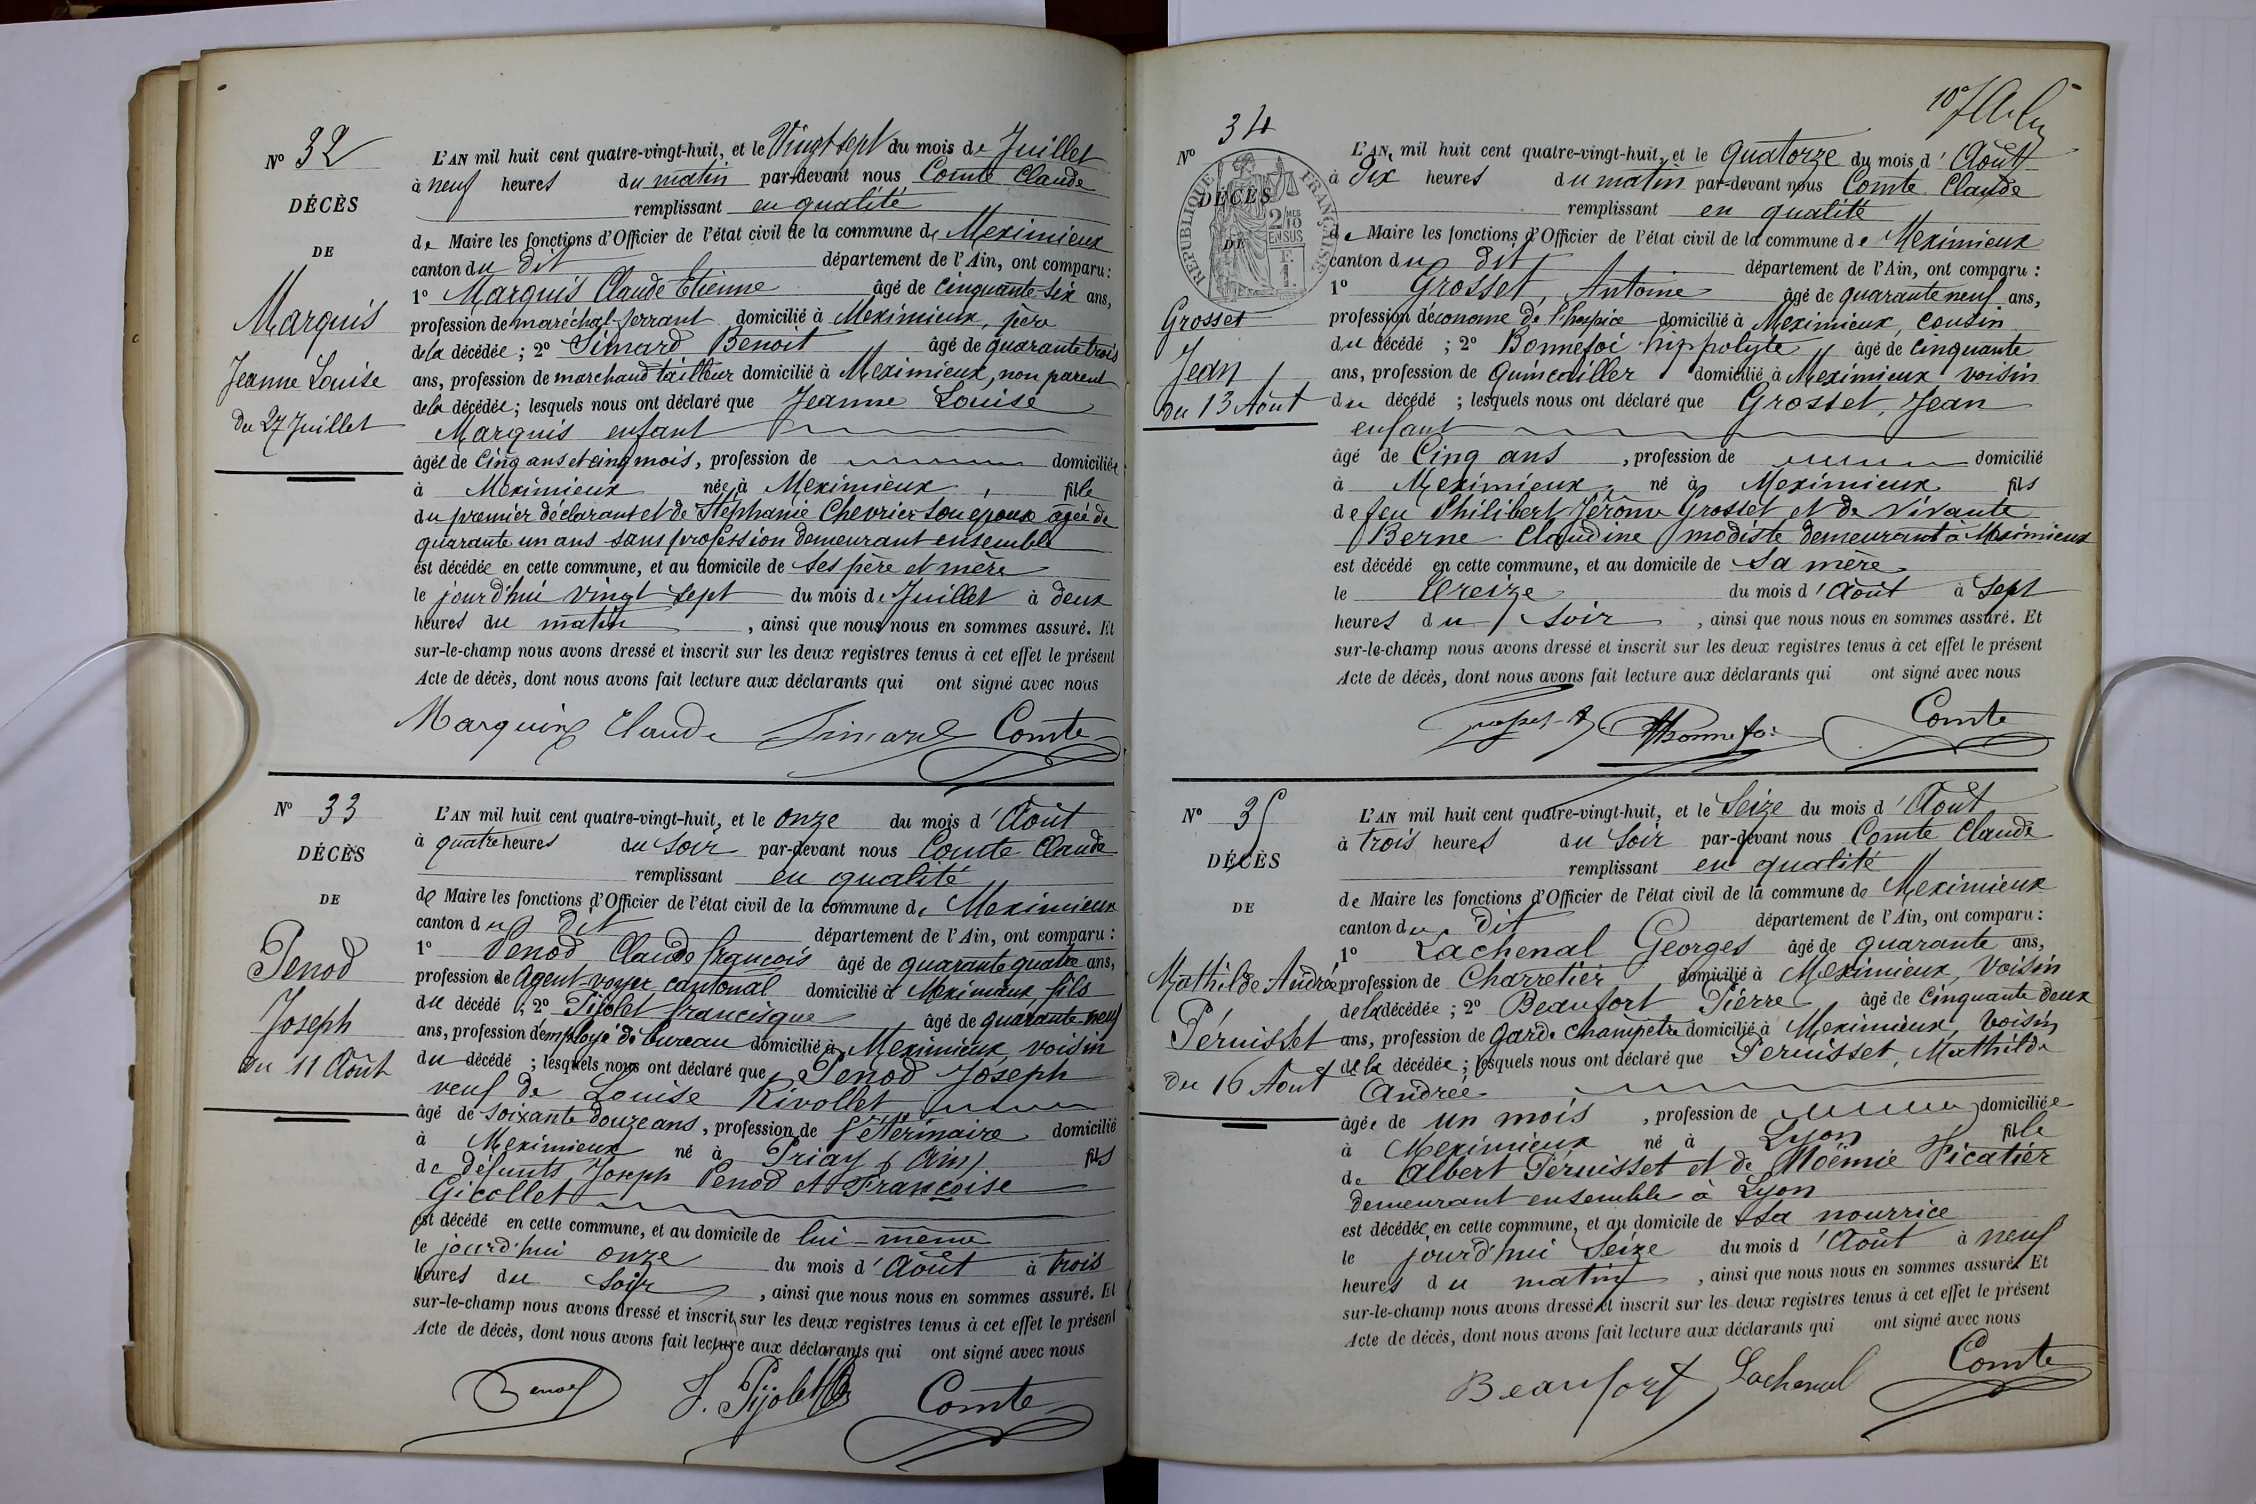 N° 32
DÉCÈS
DE
Marquis
Jeanne Louise
du 27 Juillet
L'AN mil huit cent quatre-vingt-huit, et le Vingt sept du mois de Juillet
à neuf heures du matin par-devant nous Comte Claude
remplissant en qualité
de Maire les fonctions d'Officier de l'état civil de la commune de Meximieux
canton du dit département de l'Ain, ont comparu :
1° Marquis Claude Etienne âgé de cinquante-six ans,
profession de maréchal-ferrant domicilié à Meximieux, père
de la décédée ; 2° Simard Benoit âgé de quarante trois
ans, profession de marchand tailleur domicilié à Meximieux, non parent
de la décédée ; lesquels nous ont déclaré que Jeanne Louise
Marquis enfant
âgée de Cinq ans et cinq mois, profession de domiciliée
à Meximieux née à Meximieux, fille
du premier déclarant et de Stéphanie Chevrier son epouse agée de
quarante un ans sans profession demeurant ensemble
est décédée en cette commune, et au domicile de ses père et mère
le jourd'hui vingt sept du mois de Juillet à deux
heures du matin, ainsi que nous nous en sommes assuré. Et
sur-le-champ nous avons dressé et inscrit sur les deux registres tenus à cet effet le présent
Acte de décès, dont nous avons fait lecture aux déclarants qui ont signé avec nous
Marquis Claude Simard Comte
N° 33
DÉCÈS
DE
Penod
Joseph
du 11 Août
L'AN mil huit cent quatre-vingt-huit, et le onze du mois d'Août
à quatre heures du soir par-devant nous Comte Claude
remplissant en qualité
de Maire les fonctions d'Officier de l'état civil de la commune de Meximieux
canton du dit département de l'Ain, ont comparu :
1° Penod Claude françois âgé de quarante quatre ans,
profession de Agent-voyer cantonal domicilié à Meximieux fils
du décédé ; 2° Pijolet francisque âgé de quarante-neuf
ans, profession d'employé de bureau domicilié à Meximieux, voisin
du décédé ; lesquels nous ont déclaré que Penod Joseph
veuf de Louise Rivollet
âgé de soixante douze ans, profession de Vétérinaire domicilié
à Meximieux né à Priay (Ain) fils
de défunts Joseph Penod et Françoise
Gicollet
est décédé en cette commune, et au domicile de lui-même
le jourd'hui onze du mois d'Août à trois
heures du soir, ainsi que nous nous en sommes assuré. Et
sur-le-champ nous avons dressé et inscrit sur les deux registres tenus à cet effet le présent
Acte de décès, dont nous avons fait lecture aux déclarants qui ont signé avec nous
Penod F. Pijolet Comte
N° 34
RÉPUBLIQUE FRANÇAISE
2/10 EN SUS
DÉCÈS
DE
Grosset
Jean
du 13 Août
L'AN mil huit cent quatre-vingt-huit, et le quatorze du mois d'Août
à Dix heures du matin par-devant nous Comte Claude
remplissant en qualité
de Maire les fonctions d'Officier de l'état civil de la commune de Meximieux
canton du dit département de l'Ain, ont comparu :
1° Grosset, Antoine âgé de quarante neuf ans,
profession d'économe de l'hospice domicilié à Meximieux, cousin
du décédé ; 2° Bonnefoi hippolyte âgé de cinquante
ans, profession de Quincailler domicilié à Meximieux voisin
du décédé ; lesquels nous ont déclaré que Grosset, Jean
enfant
âgé de Cinq ans, profession de domicilié
à Meximieux né à Meximieux fils
de feu Philibert Jérôme Grosset et de vivante
Berne Claudine modiste demeurant à Meximieux
est décédé en cette commune, et au domicile de sa mère
le treize du mois d'Août à Sept
heures du soir, ainsi que nous nous en sommes assuré. Et
sur-le-champ nous avons dressé et inscrit sur les deux registres tenus à cet effet le présent
Acte de décès, dont nous avons fait lecture aux déclarants qui ont signé avec nous
HBonnefoi Comte
N° 35
DÉCÈS
DE
Mathilde Andrée
Péruisset
du 16 Aout
L'AN mil huit cent quatre-vingt-huit, et le Seize du mois d'Août
à trois heures du soir par-devant nous Comte Claude
remplissant en qualité
de Maire les fonctions d'Officier de l'état civil de la commune de Meximieux
canton du dit département de l'Ain, ont comparu :
1° Lachenal Georges âgé de quarante ans,
profession de Charretier domicilié à Meximieux, voisin
de la décédée ; 2° Beaufort Pierre âgé de cinquante deux
ans, profession de Garde Champetre domicilié à Meximieux, voisin
de la décédée ; lesquels nous ont déclaré que Peruisset, Mathilde
Andrée
âgée de un mois, profession de domiciliée
à Meximieux né à Lyon fille
de Albert Péruisset et de Noémie Picatier
demeurant ensemble à Lyon
est décédée en cette commune, et au domicile de sa nourrice
le jourd'hui Seize du mois d'Août à neuf
heures du matin, ainsi que nous nous en sommes assuré. Et
sur-le-champ nous avons dressé et inscrit sur les deux registres tenus à cet effet le présent
Acte de décès, dont nous avons fait lecture aux déclarants qui ont signé avec nous
Beaufort Lachenal Comte